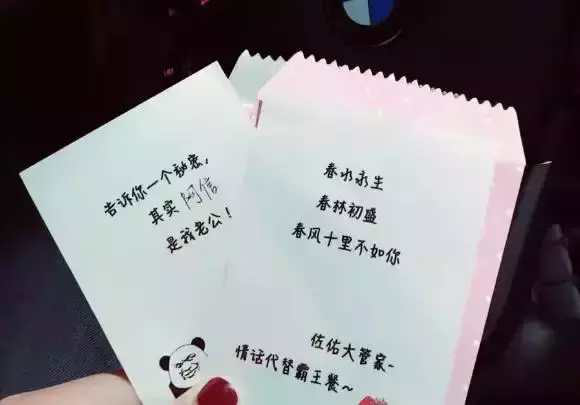 告诉你一个秘密，
其实 阿信
是我老公！
春水永生
春林初盛
春风十里不如你
佐佑大管家-
情话代替霸王餐~